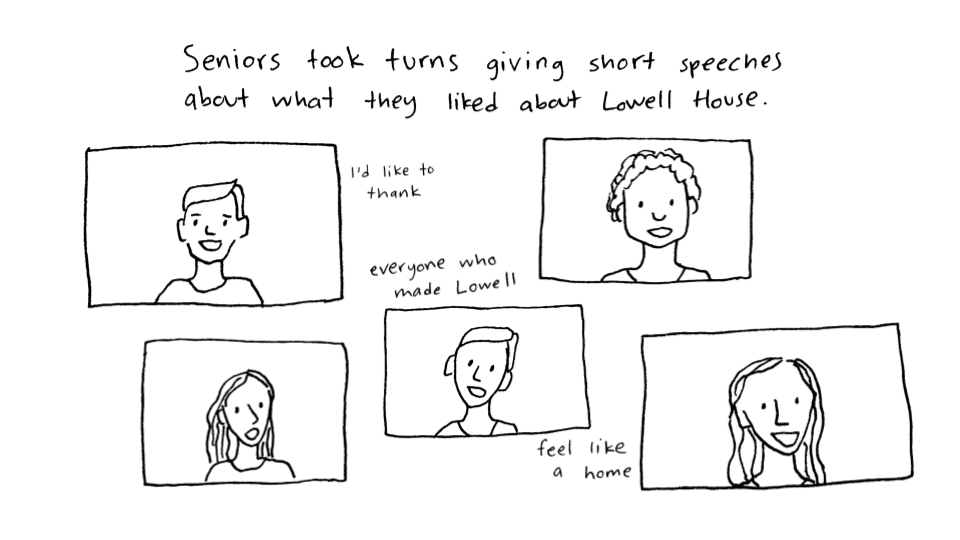 Seniors took turns giving short speeches
about what they liked about Lowell House.
I'd like to
thank
everyone who
made Lowell
feel like
a home